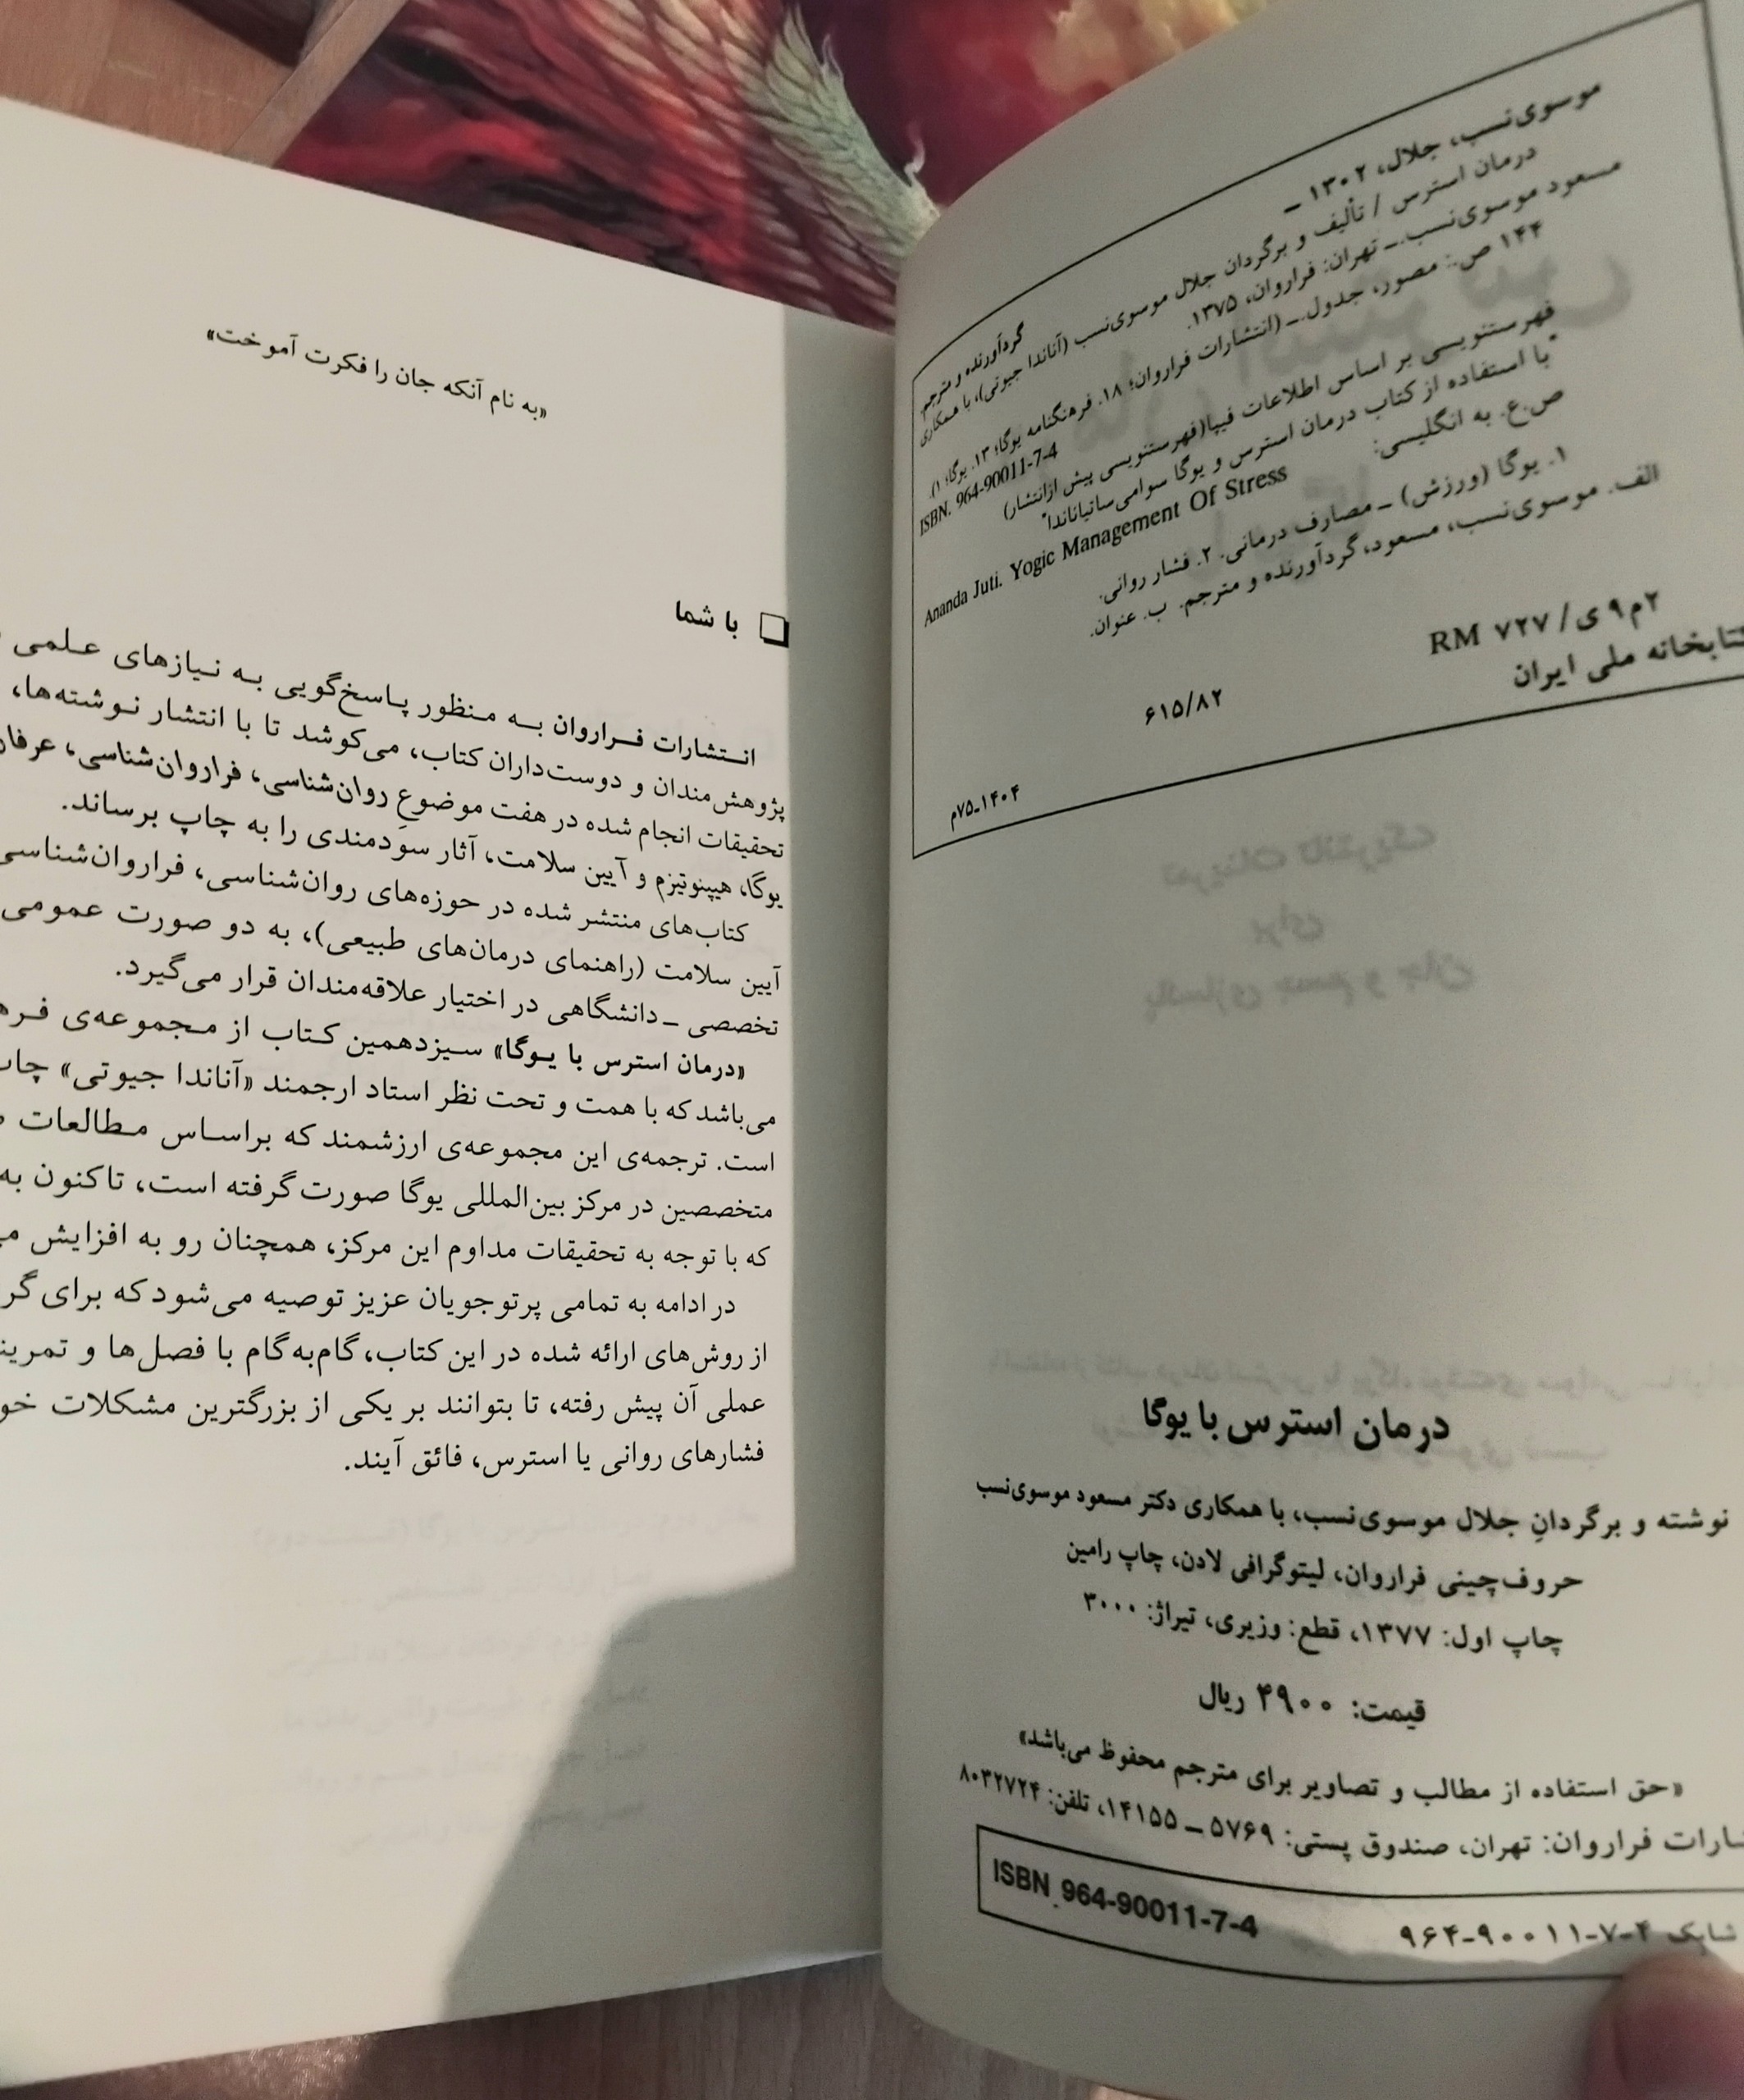 موسوی‌نسب، جلال، ۱۳۰۲ ـ گردآورنده و مترجم.
درمان استرس / تألیف و برگردان جلال موسوی‌نسب (آناندا جیوتی)، با همکاری
مسعود موسوی‌نسب. ـ تهران: فراروان، ۱۳۷۵.
۱۴۴ ص.: مصور، جدول. ـ (انتشارات فراروان؛ ۱۸. فرهنگنامه یوگا؛ ۱۳. یوگا؛ ۱).
ISBN. 964-90011-7-4
فهرستنویسی بر اساس اطلاعات فیپا (فهرستنویسی پیش از انتشار)
"با استفاده از کتاب درمان استرس و یوگا سوامی‌ساتیاناندا"
ص.ع. به انگلیسی:
Ananda Juti. Yogic Management Of Stress
۱. یوگا (ورزش) ـ مصارف درمانی. ۲. فشار روانی.
الف. موسوی‌نسب، مسعود، گردآورنده و مترجم. ب. عنوان.
۲م۹ی/ ۷۲۷ RM
۶۱۵/۸۲
کتابخانه ملی ایران
۱۴۰۴ـ۷۵م
درمان استرس با یوگا
نوشته و برگردانِ جلال موسوی‌نسب، با همکاری دکتر مسعود موسوی‌نسب
حروف‌چینی فراروان، لیتوگرافی لادن، چاپ رامین
چاپ اول: ۱۳۷۷، قطع: وزیری، تیراژ: ۳۰۰۰
قیمت: ۴۹۰۰ ریال
«حق استفاده از مطالب و تصاویر برای مترجم محفوظ می‌باشد»
فراروان: تهران، صندوق پستی: ۵۷۶۹ ـ ۱۴۱۵۵، تلفن: ۸۰۳۲۷۲۴
شابک ۴-۷-۹۰۰۱۱-۹۶۴ ISBN. 964-90011-7-4
«به نام آنکه جان را فکرت آموخت»
با شما
انتشارات فراروان به منظور پاسخ‌گویی به نیازهای علمی
پژوهش‌مندان و دوست‌داران کتاب، می‌کوشد تا با انتشار نوشته‌ها،
تحقیقات انجام شده در هفت موضوعِ روان‌شناسی، فراروان‌شناسی، عرفان
یوگا، هیپنوتیزم و آیین سلامت، آثار سودمندی را به چاپ برساند.
کتاب‌های منتشر شده در حوزه‌های روان‌شناسی، فراروان‌شناسی
آیین سلامت (راهنمای درمان‌های طبیعی)، به دو صورت عمومی
تخصصی ـ دانشگاهی در اختیار علاقه‌مندان قرار می‌گیرد.
«درمان استرس با یوگا» سیزدهمین کتاب از مجموعه‌ی
می‌باشد که با همت و تحت نظر استاد ارجمند «آناندا جیوتی»
است. ترجمه‌ی این مجموعه‌ی ارزشمند که براساس مطالعات
متخصصین در مرکز بین‌المللی یوگا صورت گرفته است، تاکنون به
که با توجه به تحقیقات مداوم این مرکز، همچنان رو به افزایش
در ادامه به تمامی پرتوجویان عزیز توصیه می‌شود که برای
از روش‌های ارائه شده در این کتاب، گام‌به‌گام با فصل‌ها و
عملی آن پیش رفته، تا بتوانند بر یکی از بزرگترین مشکلات
فشارهای روانی یا استرس، فائق آیند.